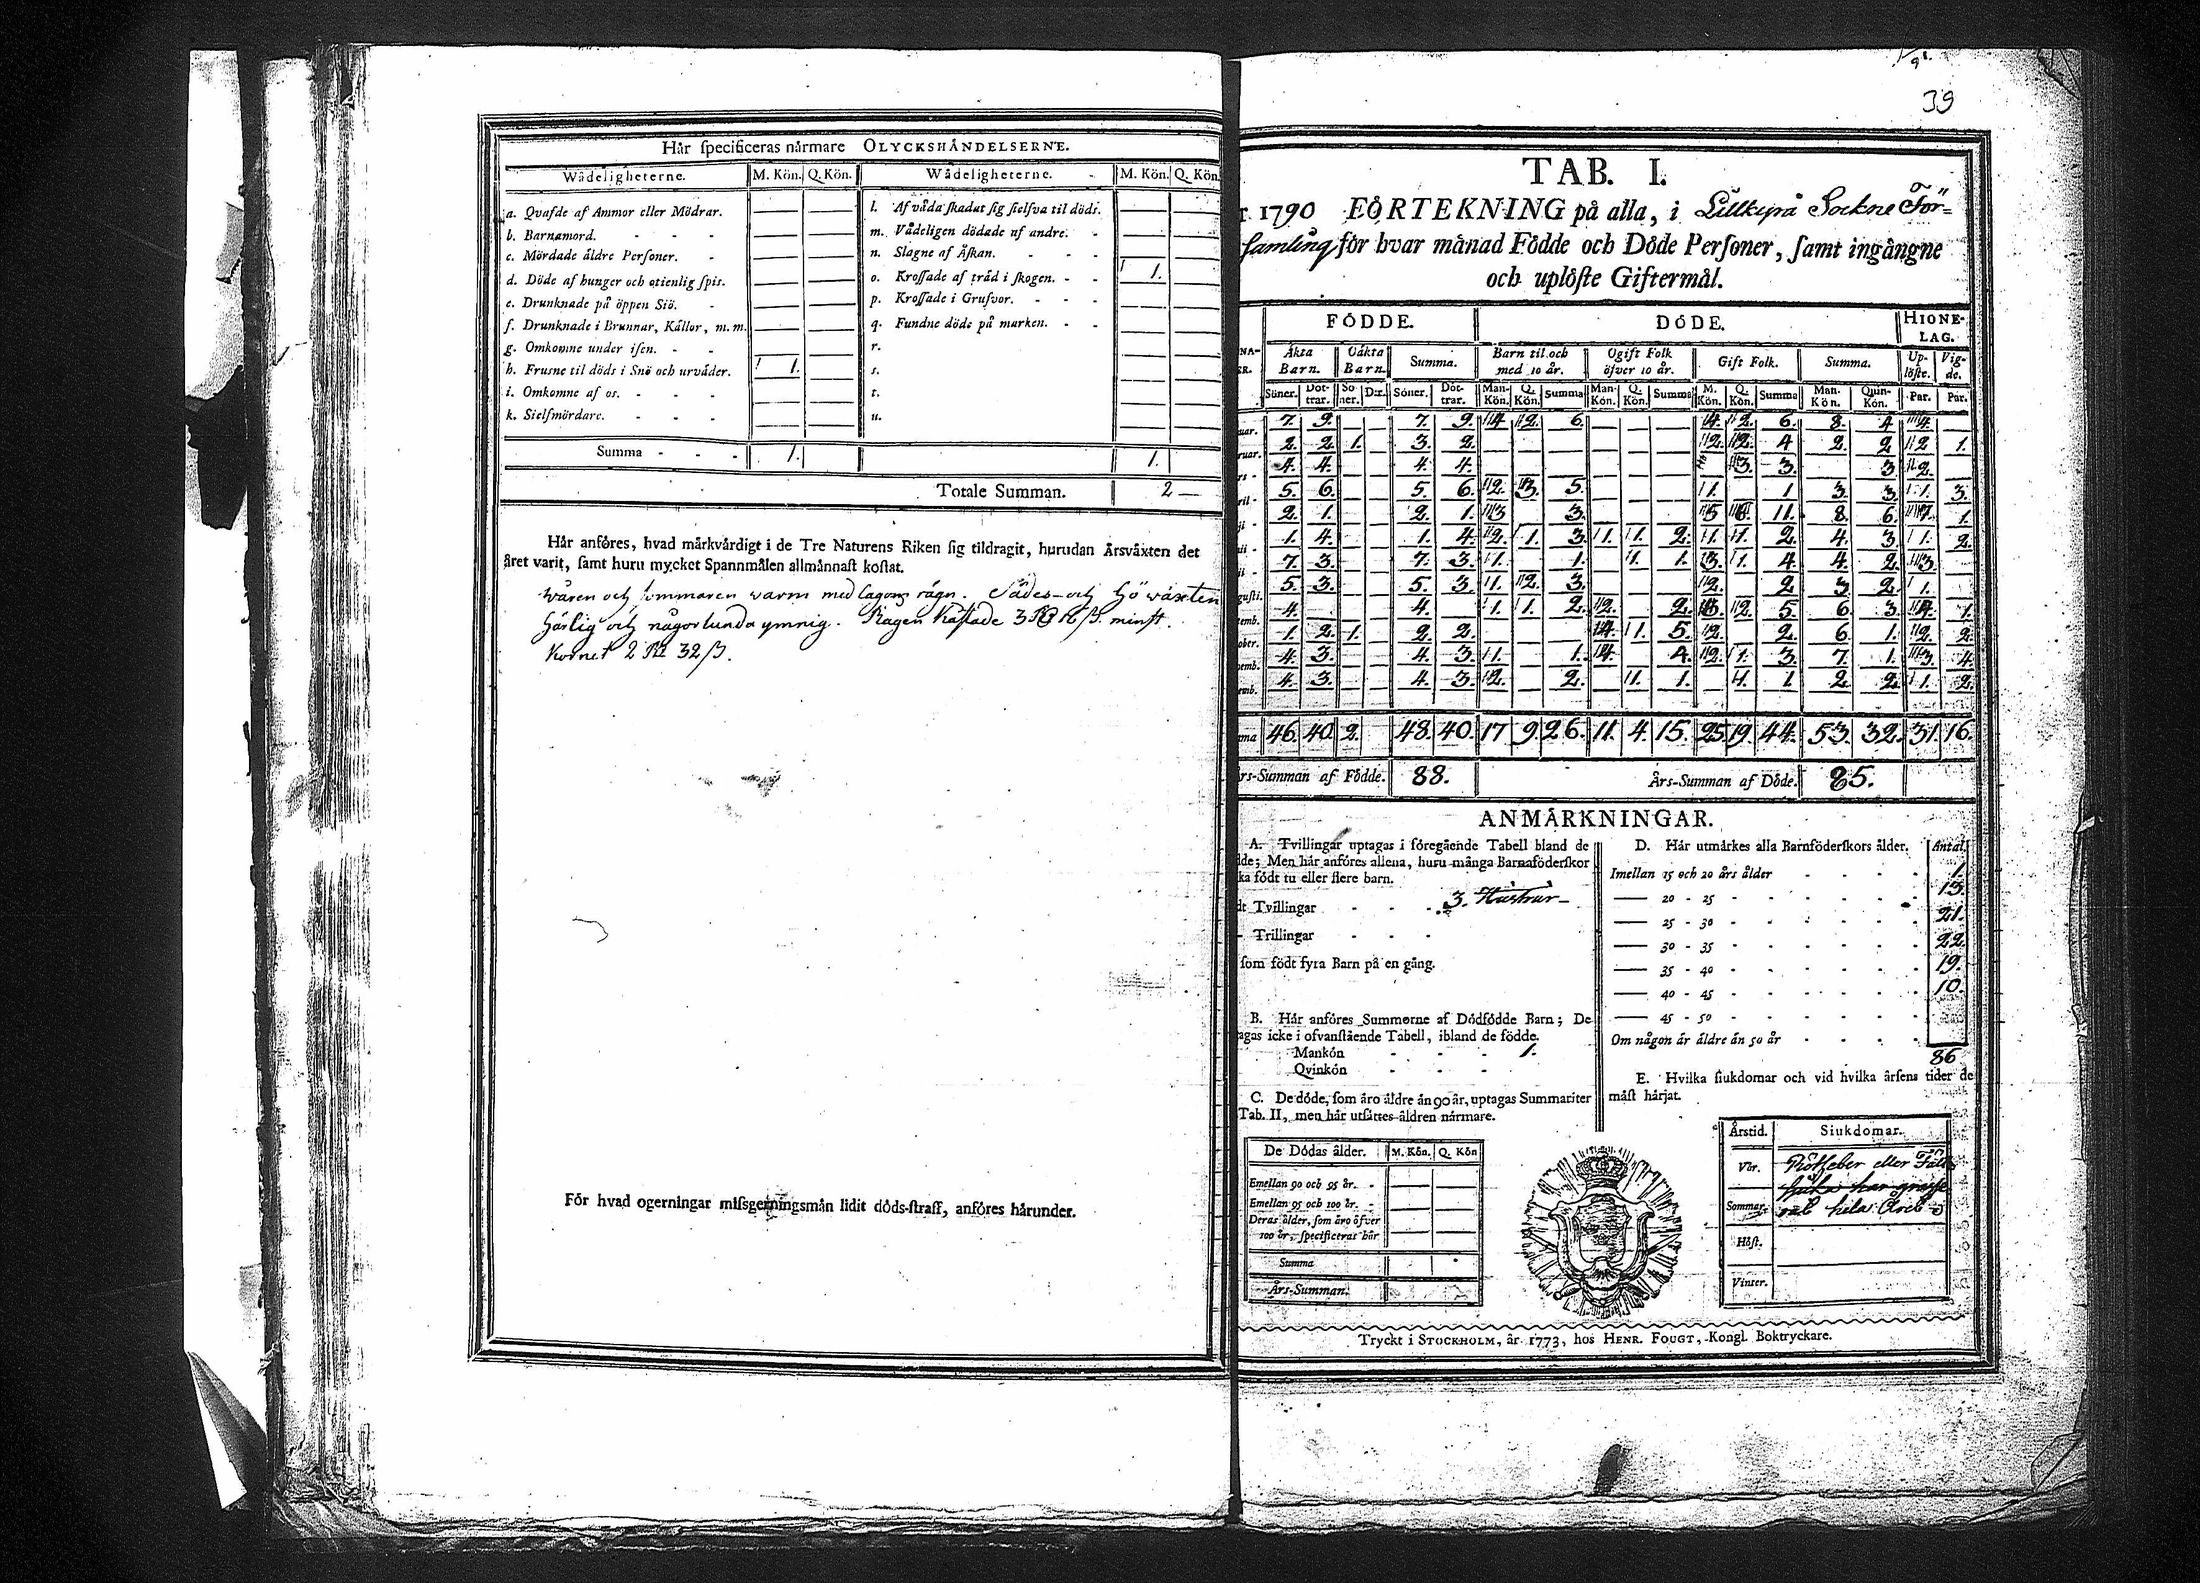 Hår specificeras nårmare OLYCKSHÅNDELSERNE.
Wådeligheterne. M. Kön. Q. Kön. Wådeligheterne. M. Kön. Q. Kön.
a. Qvafde af Ammor eller Mödrar.
b. Barnamord.
c. Mördade åldre Personer.
d. Döde af hunger och otienlig spis.
e. Drunknade på öppen Siö.
f. Drunknade i Brunnar, Kållor, m. m.
g. Omkomne under isen.
h. Frusne til döds i Snö och urvåder. 1.
i. Omkomne af os.
k. Sielfmördare.
Summa 1.
l. Af våda skadat sig sielfva til döds.
m. Vådeligen dödade af andre.
n. Slagne af Åskan.
o. Krossade af tråd i skogen. 1.
p. Krossade i Grufvor.
q. Fundne döde på marken.
r.
s.
t.
u.
1.
Totale Summan. 2
Hår anföres, hvad mårkvårdigt i de Tre Naturens Riken sig tildragit, hurudan Årsvåxten det
året varit, samt huru mycket Spannmålen allmånnast kostat.
Våren och sommaren varm med lagom rägn. Sädes- och hö wäxten
härlig och någorlunda ymnig. Rågen kåstade 3 Rd 16 ß. minst.
Kornet 2 Rd 32 ß.
För hvad ogerningar missgerningsmån lidit döds-straff, anföres hårunder.
39
TAB. I.
1790 FÖRTEKNING på alla, i Lillkyrå Sockne För=
samling för hvar månad Födde och Döde Personer, samt ingångne
och uplöste Giftermål.
FÖDDE. DÖDE. HIONE-LAG.
Åkta Barn. Oåkta Barn. Summa. Barn til och med 10 år. Ogift Folk öfver 10 år. Gift Folk. Summa. Up-löste. Vig-de.
Söner. Dot-trar. So-ner. D:r. Söner. Döt-trar. Man-Kön. Q. Kön. Summa Man-Kön. Q. Kön. Summa M. Kön. Q. Kön. Summa Man-Kön. Quin-Kön. Par. Par.
uar. 7. 9. 7. 9. 4 2. 6. 4. 2. 6. 8. 4 4.
ruar. 2. 2. 1. 3. 2. 2. 2. 4 2. 2 2 1.
rs 4. 4. 4. 4. 3. 3. 3 2.
ril 5. 6. 5. 6. 2. 3. 5. 1. 1 3. 3. 1. 3.
ji 2. 1. 2. 1. 3 3. 5 6. 11. 8. 6. 7. 1.
nii 1. 4. 1. 4. 2. 1. 3. 1. 1. 2. 1. 1. 2. 4. 3. 1. 2.
ii 7. 3. 7. 3. 1. 1. 1. 1. 3. 1. 4. 4. 2. 3.
gusti. 5. 3. 5. 3. 1. 2. 3. 2. 2 3. 2. 1.
temb. 4. 4. 1. 1. 2. 2. 2. 3. 2. 5. 6. 3. 4. 1.
ober. 1. 2. 1. 2. 2. 4. 1. 5. 2. 2. 6. 1. 2. 2.
vemb. 4. 3. 4. 3. 1. 1. 4. 4. 2. 1. 3. 7. 1. 3. 4.
emb. 4. 3. 4. 3. 2. 2. 1. 1. 1. 1 2. 2. 1. 2.
ma 46. 40. 2. 48. 40. 17 9. 26. 11. 4. 15. 25. 19 44. 53. 32. 31. 16.
rs-Summan af Födde. 88. Års-Summan af Döde. 85.
ANMÅRKNINGAR.
A. Tvillingar uptagas i föregående Tabell bland de
de; Men hår anföres allena, huru många Barnaföderskor
ka födt tu eller flere barn.
dt Tvillingar 3. Hustrur
Trillingar
som födt fyra Barn på en gång.
B. Hår anföres Summorne af Dödfödde Barn; De
agas icke i ofvanstående Tabell, ibland de födde.
Mankön 1.
Qvinkön
C. De döde, som åro åldre ån 90 år, uptagas Summariter
Tab. II, men hår utsåttes åldren nårmare.
De Dödas ålder. M. Kön. Q. Kön
Emellan 90 och 95 år.
Emellan 95 och 100 år.
Deras ålder, som åro öfver
100 år, specificeras hår
Summa
Års-Summan.
D. Hår utmårkes alla Barnföderskors ålder. Antal.
Imellan 15 och 20 års ålder 1.
20 - 25 13.
25 - 30 21.
30 - 35 22.
35 - 40 19.
40 - 45 10.
45 - 50
Om någon år åldre ån 50 år
86
E. Hvilka siukdomar och vid hvilka årsens tider de
måst hårjat.
Årstid. Siukdomar.
Vår. Rötfeber eller Fält
siuka har grasse
Sommar. rat hela Året
Höst.
Vinter.
Tryckt i STOCKHOLM, år 1773, hos HENR. FOUGT, Kongl. Boktryckare.